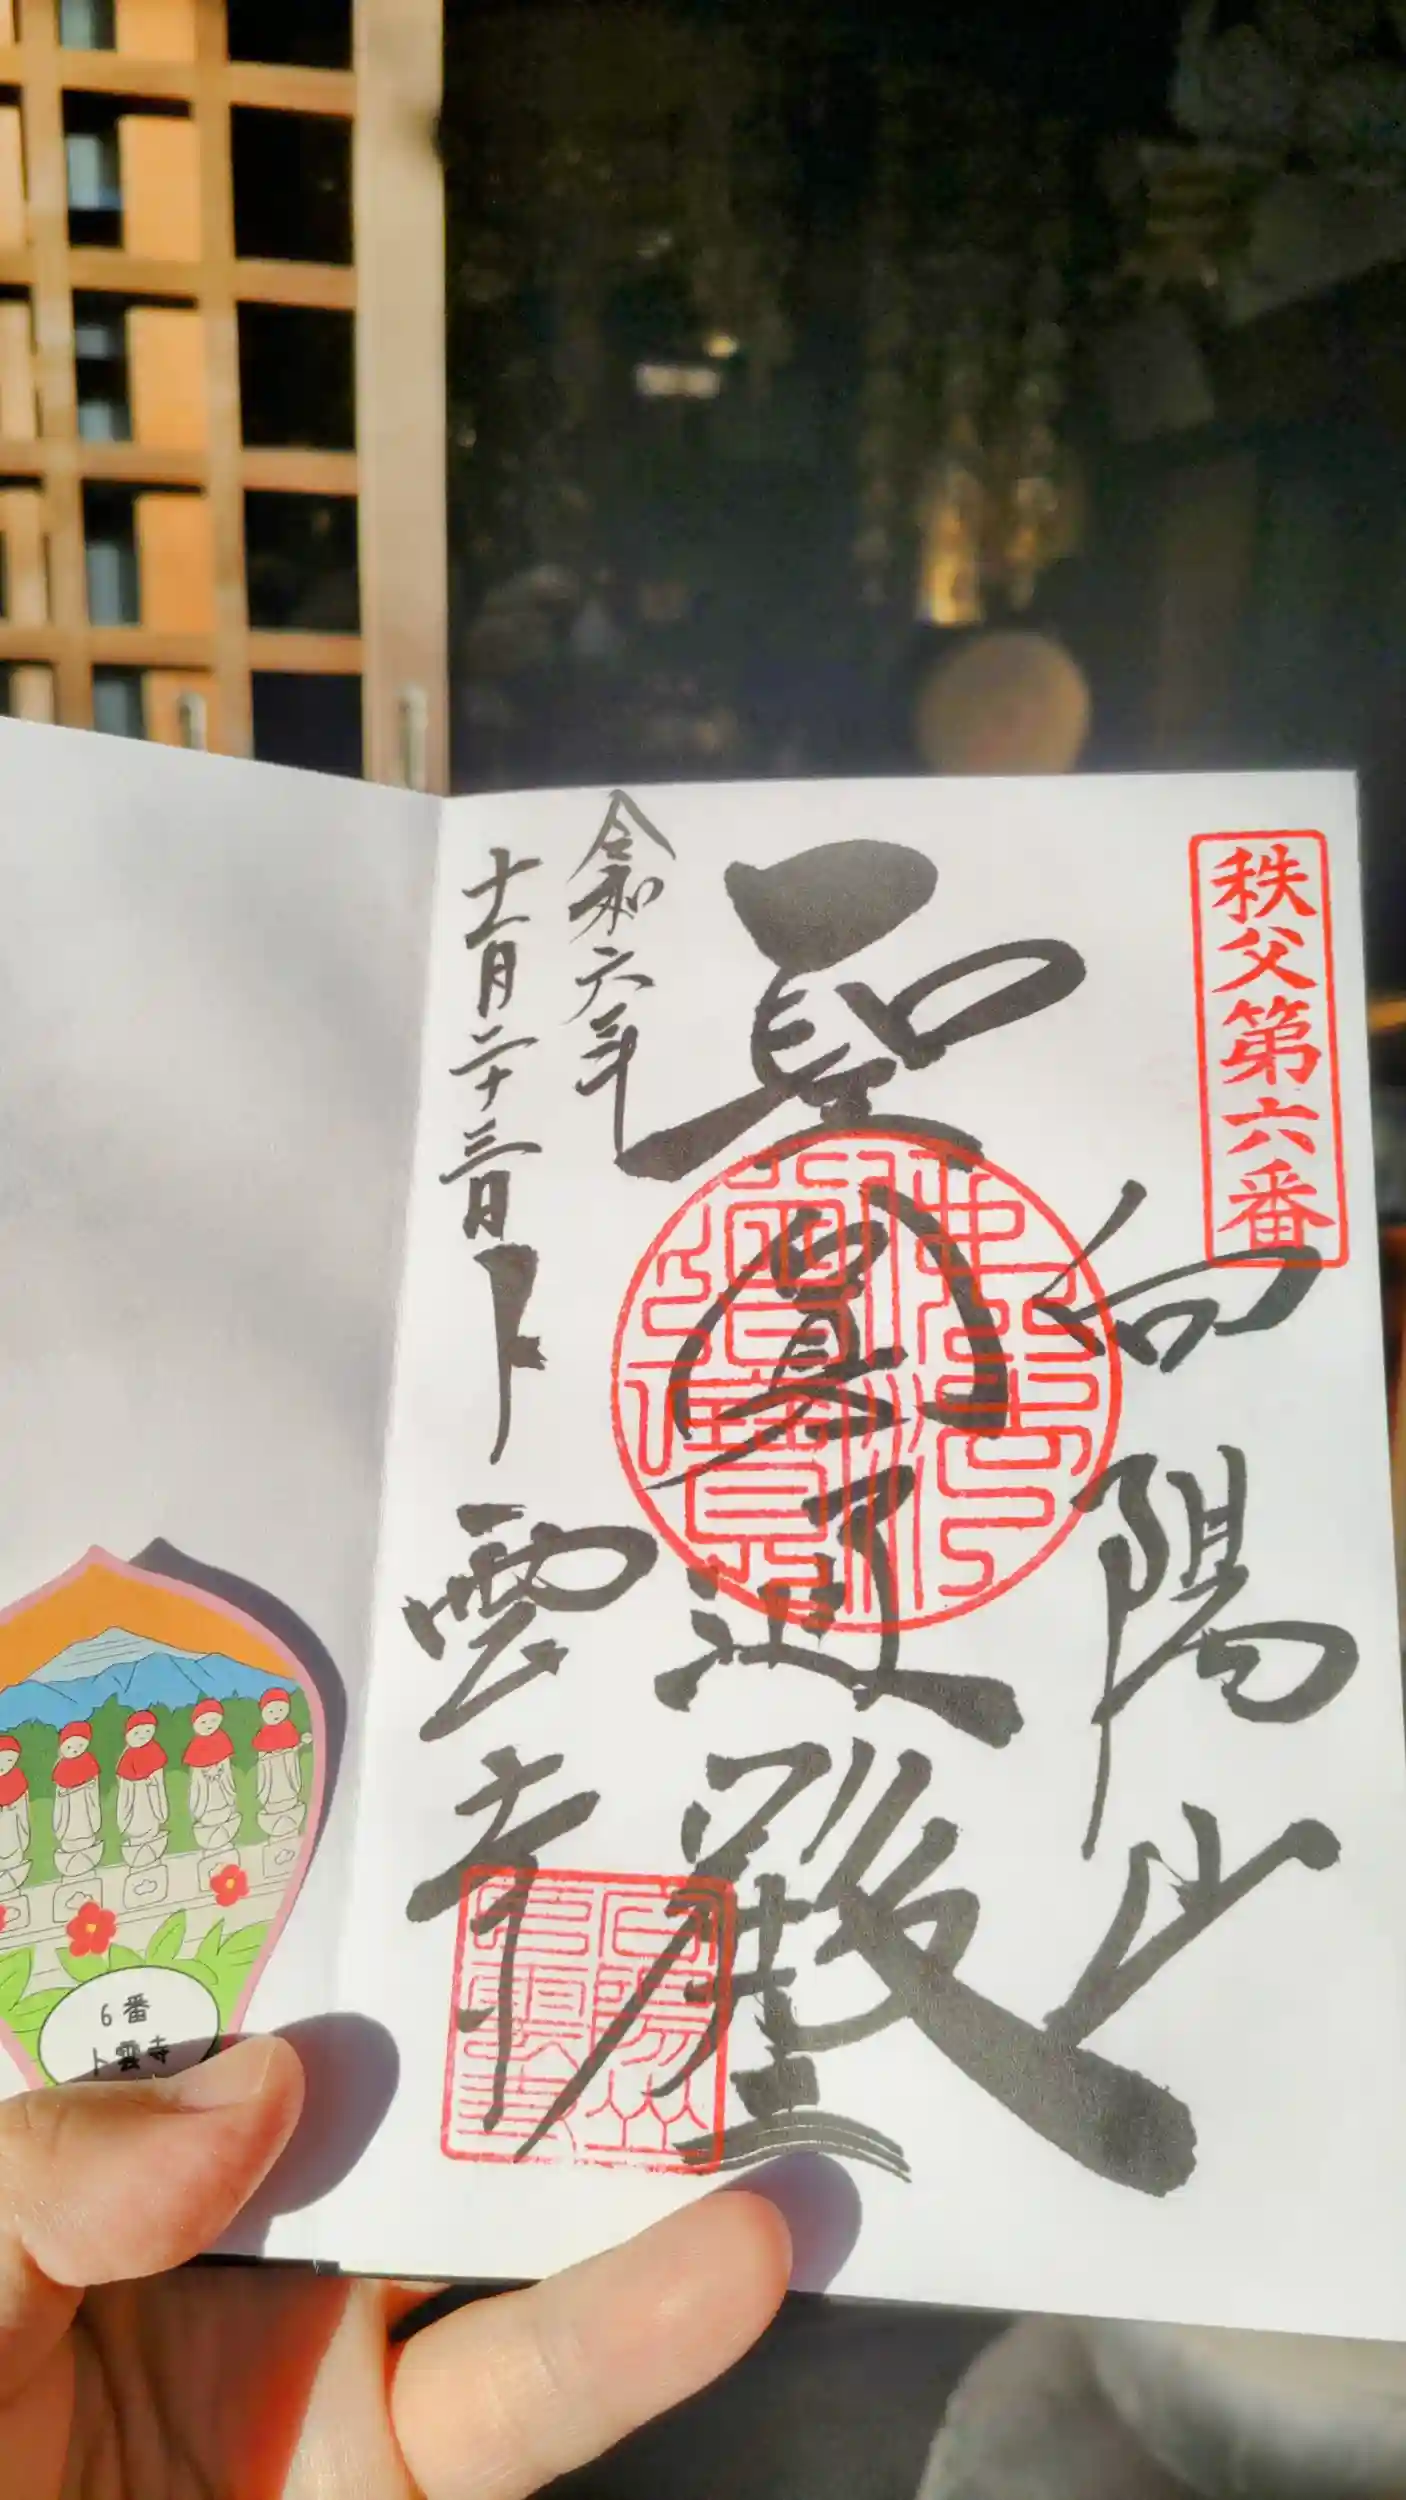 秩父第六番
向陽山
聖圓通殿
令和六年
十一月二十三日
卜雲寺
6番
卜雲寺